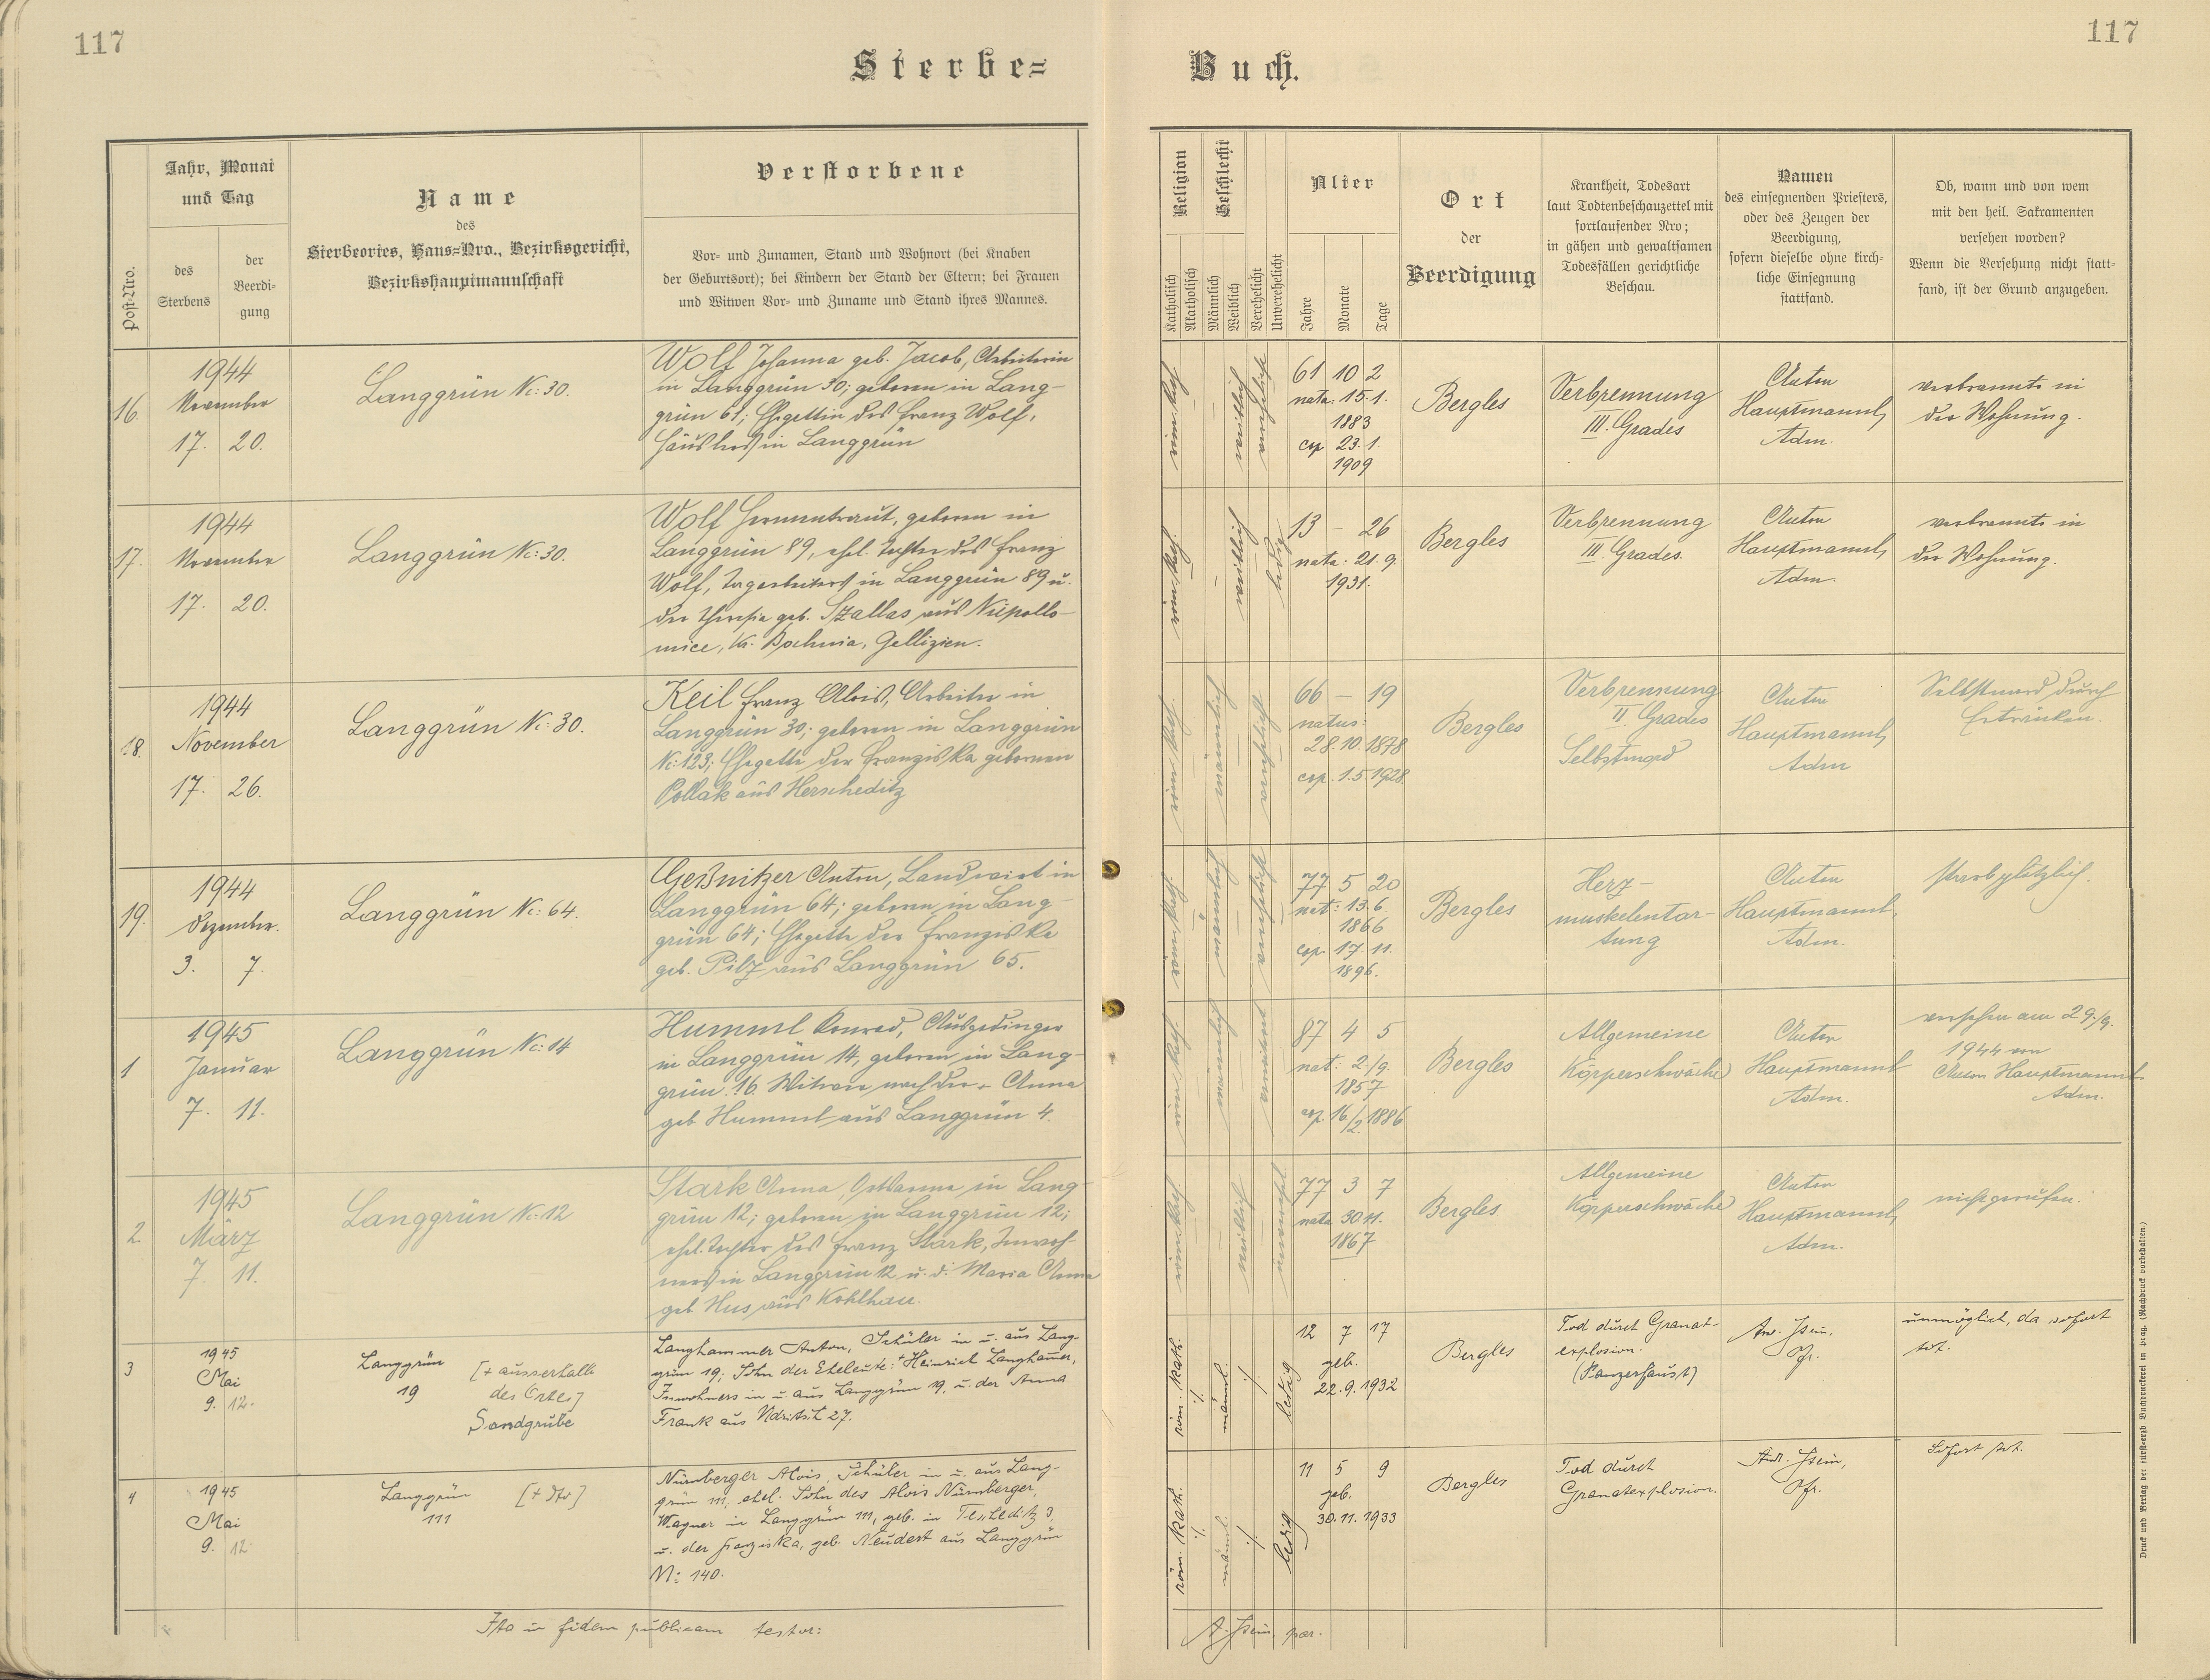 117
117
Sterbe=
Buch.
Post-Nro.
Jahr, Monat
und Tag
des
Sterbens
der
Beerdi-
gung
Name
des
Sterbeortes, Haus=Nro., Bezirksgericht,
Bezirkshauptmannschaft
Verstorbene
Vor- und Zunamen, Stand und Wohnort (bei Knaben
der Geburtsort); bei Kindern der Stand der Eltern; bei Frauen
und Witwen Vor- und Zuname und Stand ihres Mannes.
Religion
Katholisch
Akatholisch
Geschlecht
Männlich
Weiblich
Verehelicht
Unverehelicht
Alter
Jahre
Monate
Tage
Ort
der
Beerdigung
Krankheit, Todesart
laut Todtenbeschauzettel mit
fortlaufender Nro;
in gähen und gewaltsamen
Todesfällen gerichtliche
Beschau.
Namen
des einsegnenden Priesters,
oder des Zeugen der
Beerdigung,
sofern dieselbe ohne kirch-
liche Einsegnung
stattfand.
Ob, wann und von wem
mit den heil. Sakramenten
versehen worden?
Wenn die Versehung nicht statt-
fand, ist der Grund anzugeben.
16.
1944
November
17. 20.
Langgrün Nc: 30.
Wolf Johanna geb. Jacob, Arbeiterin
in Langgrün 30; geboren in Lang-
grün 61; Ehegattin des Franz Wolf,
Häuslers in Langgrün
röm. kath.
weiblich
verehelicht
61 10 2
nata: 15.1.
1883
cop 23.1.
1909
Bergles
Verbrennung
III. Grades
Anton
Hauptmannl,
Adm.
verbrannte in
der Wohnung.
17.
1944
November
17. 20.
Langgrün Nc: 30.
Wolf Hermentraut, geboren in
Langgrün 89, ehel. Tochter des Franz
Wolf, Tagarbeiters in Langgrün 89 u.
der Theresia geb. Szallas aus Niepollo-
mice, Kr. Bochnia, Gallizien.
röm. kath.
weiblich
ledig
13 — 26
nata: 21.9.
1931.
Bergles
Verbrennung
III. Grades.
Anton
Hauptmannl,
Adm.
verbrannte in
der Wohnung.
18.
1944
November
17. 26.
Langgrün Nc: 30.
Keil Franz Alois, Arbeiter in
Langgrün 30; geboren in Langgrün
Nc: 123; Ehegatte der Franziska gebornen
Pollak aus Herscheditz
röm. kath.
männlich
verehelicht
66 — 19
natus:
28.10.1878
cop. 1.5.1928.
Bergles
Verbrennung
II. Grades
Selbstmord
Anton
Hauptmannl,
Adm
Selbstmord durch
Ertränken.
19.
1944
Dezember.
3. 7.
Langgrün Nc: 64.
Geßnitzer Anton, Landwirt in
Langgrün 64; geboren in Lang-
grün 64; Ehegatte der Franziska
geb. Pilz aus Langgrün 65.
röm. kath.
männlich
verehelicht
77 5 20
nat: 13.6.
1866
cop. 17.11.
1896.
Bergles
Herz-
muskelentar-
tung
Anton
Hauptmannl,
Adm.
starb plötzlich.
1
1945
Januar
7. 11.
Langgrün Nc: 14
Hummel Konrad, Ausgedinger
in Langgrün 14, geboren in Lang-
grün 16. Witwer nach der + Anna
geb Hummel aus Langgrün 4.
röm. kath.
männlich
verwitwet
87 4 5
nat: 2./9.
1857
cop. 16/2.1886
Bergles
Allgemeine
Körperschwäche
Anton
Hauptmannl
Adm.
versehen am 29./9.
1944 von
Anton Hauptmannl.
Adm.
2.
1945
März
7. 11.
Langgrün Nc: 12
Stark Anna, in Lang-
grün 12; geboren in Langgrün 12;
ehel. Tochter des Franz Stark, Inwoh-
ners in Langgrün 12 u. d. Maria Anna
geb. Hus aus Kohlhau.
röm. kath.
weiblich
unverehel.
77 3 7
nata 30.11.
1867
Bergles
Allgemeine
Körperschwäche
Anton
Hauptmannl,
Adm.
nicht gerufen.
3
1945
Mai
9. 12.
Langgrün
19
[+ ausserhalb
des Ortes]
Sandgrube
Langhammer Anton, Schüler in u. aus Lang-
grün 19, Sohn der Eheleute: + Heinrich Langham̄er,
Inwohners in u. aus Langgrün 19, u. der Anna
Frank aus 27.
röm. kath.
männl.
ledig
12 7 17
geb.
22.9.1932
Bergles
Tod durch Granat-
explosion.
(Panzerfaust)
Pfr.
unmöglich, da sofort
tot.
4
1945
Mai
9. 12.
Langgrün
111
[+ dto]
Nürnberger Alois, Schüler in u. aus Lang-
grün 111, ehel. Sohn des Alois Nürnberger,
Wagner in Langgrün 111, geb. in 3,
u. der Franziska, geb. Neudert aus Langgrün
N: 140.
röm. kath.
männl.
ledig
11 5 9
geb.
30.11.1933
Bergles
Tod durch
Granatexplosion.
Pfr.
Sofort tot.
Ita in fidem publicam testor:
par.
Druck und Verlag der fürsterzb. Buchdruckerei in Prag. (Nachdruck vorbehalten.)